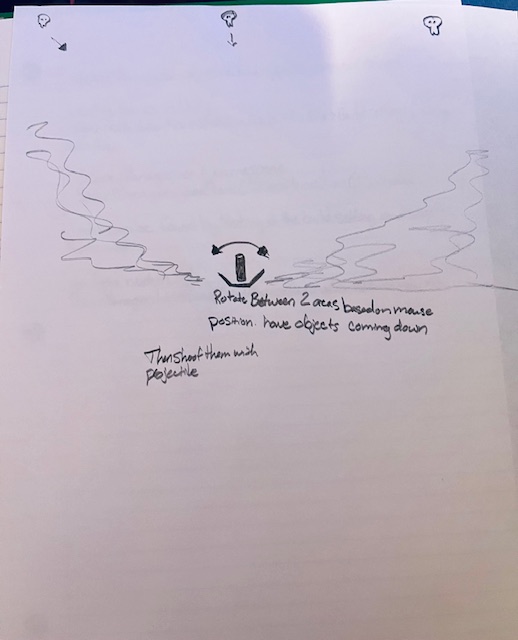 Rotate Between 2 areas based on mouse
position. have objects coming down
Then shoot them with
projectile